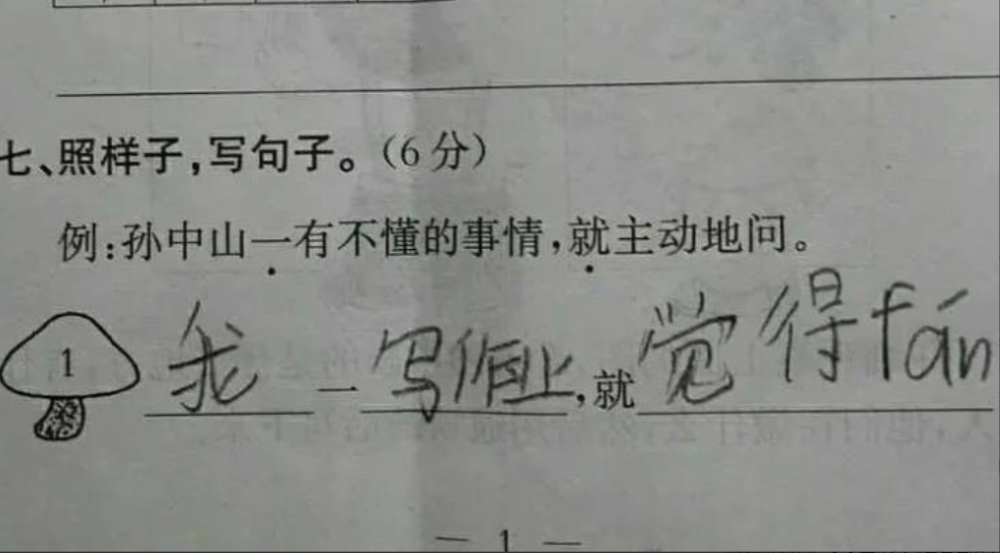 七、照样子,写句子。(6分)
例:孙中山一有不懂的事情,就主动地问。
1 我 一 写作业,就 觉得fán
— 1 —